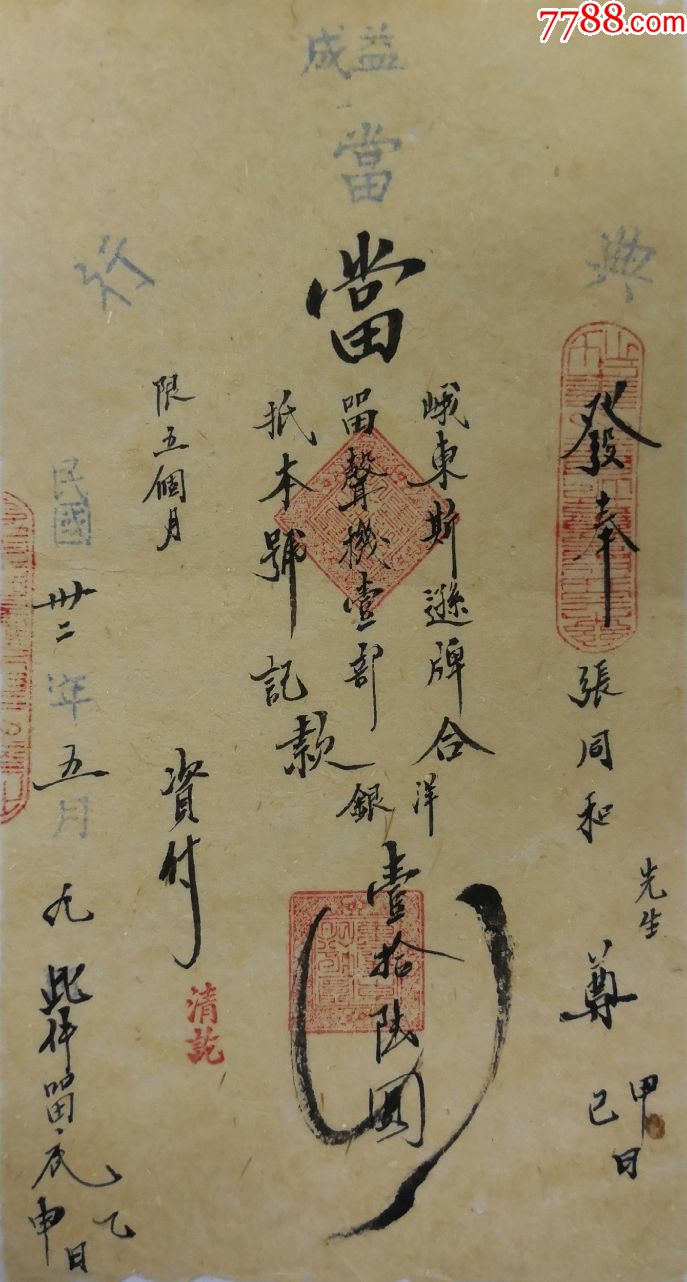 7788.com
益成
當
典
行
當
發奉
張同和
先生
尊
甲
己日
峨東斯遜牌合洋
留聲機壹部銀
壹拾陸圓
抵本號記款
限五個月
資付
清訖
民國卅二年五月九
此件留底
乙
申日